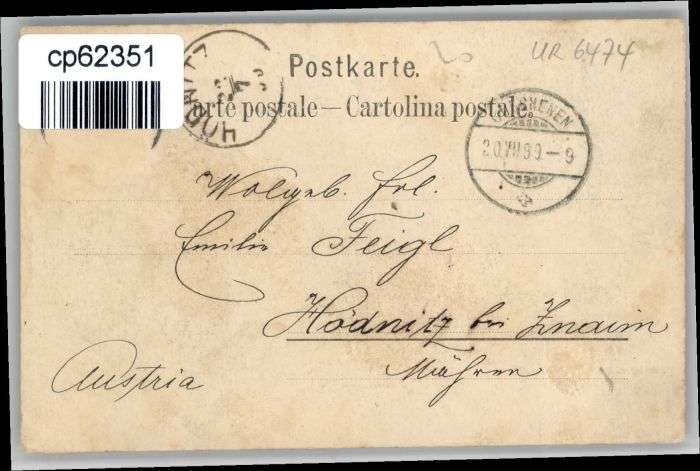 cp62351
UR 6474
Postkarte.
arte postale — Cartolina postale.
20.VIII.99.–9
Wolgeb. Frl.
Emilie Feigl
Hödnitz bei Znaim
Mähren
Austria